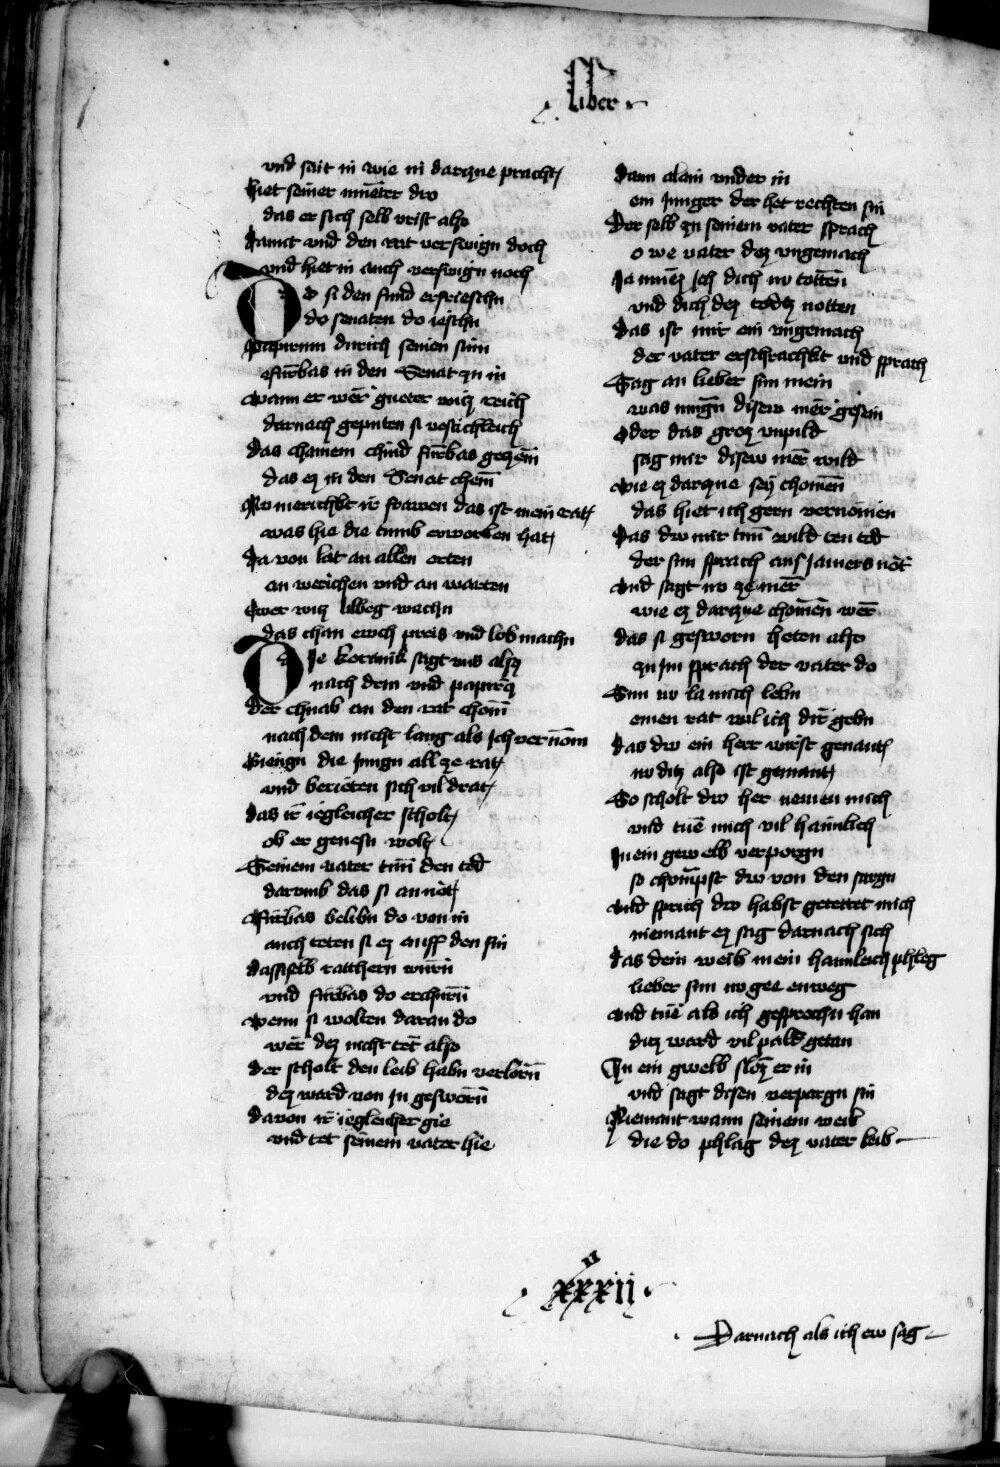 liber
und sait in wie in darzue pracht
hiet seiner mueter dro
das er sich selb vrist also
damit und den rat verswign doch
und hiet in auch verswign noch
Do si den sund erfrieschn
do senaten do ieschn
papirum durich seinen sinn
fürbas in den Senat zu in
wann er wer gueter witz reich
darnach geputen si vestichleich
das chainem chind fürbas gezem
das ez in den Senat chem
Nu merichkt ir frawen das ist mein rat
was hie die tumb erworben hat
da von lat an allen orten
an werichen und an warten
ewer witz albeg wachn
das chan ewch preis und lob machn
Die koranik sagt uns also
nach dem und papiro
der chnab an den rat chom
nach dem nicht lang als ich vernom
Giengn die jungn all ze rat
und berieten sich vil drat
das ir iegleicher scholt
ob er genesn wolt
Seinem vater tun den tod
darumb das si an not
fürbas belibn do von in
auch teten si ez auff den sin
dasselb ratthern wurn
und fürbas do erchurn
wenn si wolten daran do
wer dez nicht tet also
der scholt den leib habn verlorn
dez ward von in gesworn
davon ir iegleicher gie
und tet seinem vater hie
dann alain under in
ein junger der het rechten sin
Der selb zu seinem vater sprach
o we vater dez ungemach
Ja muez ich dich nu totten
und dich dez todez notten
das ist mir ein ungemach
der vater erschrachkt und sprach
Sag an lieber sun mein
was mugn disew mer gesein
Oder das groz unpild
sag mir disew mer wild
wie ez darzue sey chomen
das hiet ich gern vernomen
das dw mir tun wild ten tod
der sun sprach aus jamers not
und sagt no ze mer
wie ez darzue chomen wer
das si gesworn heten also
zu im sprach der vater do
Sun nu la mich lebn
einen rat wil ich dir gebn
das dw ein herr wirst genant
nu ditz also ist gemant
So scholt dw her nemen mich
und tue mich vil haimlich
In ein gewelb verporgn
so chumpst dw von den sargn
und sprich dw habst getettet mich
niemant ez sag darnach sich
das dein weib mein haimleich phleg
lieber sun nu gee enweg
und tue als ich gesprochn han
ditz ward vil pald getan
In ein gwelb sloz er in
und sagt disen verpargn sin
Niemant wann seinem weib
die do phlag dez vater leib
xxxii o
Darnach als ich ew sag